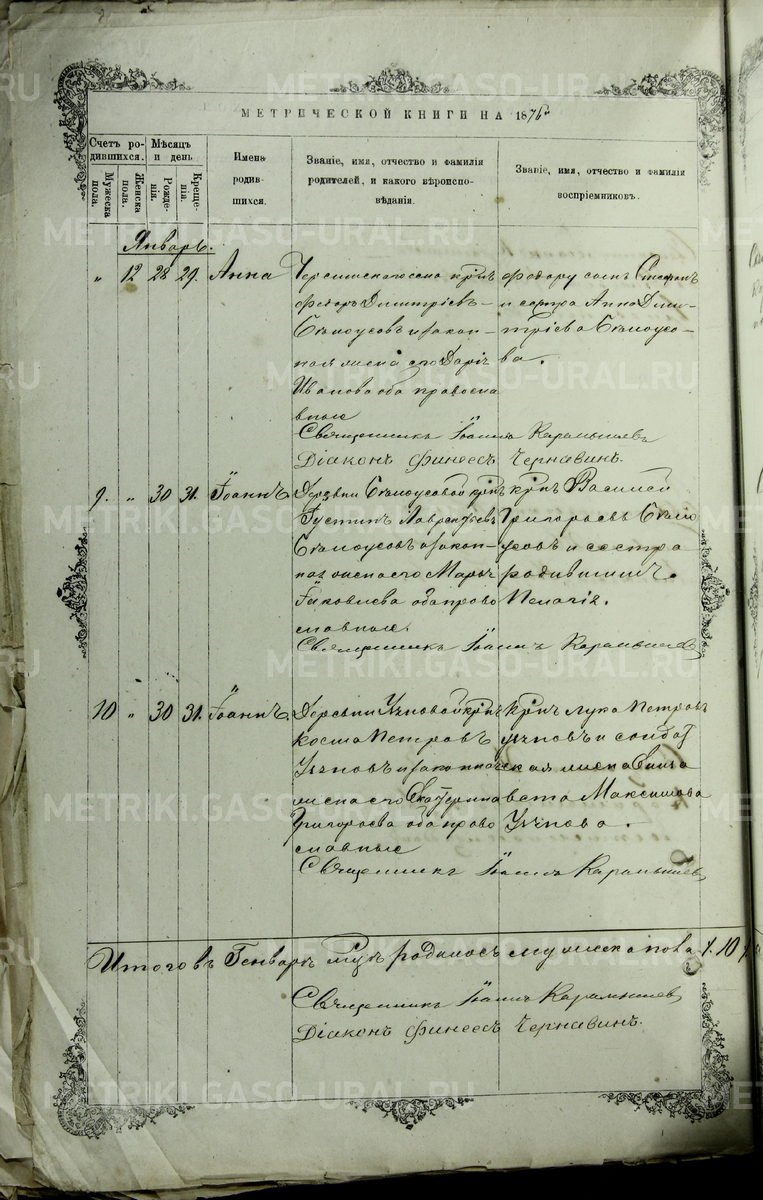 МЕТРИЧЕСКОЙ КНИГИ НА 1876
Счетъ ро-
дившихся.
Мужеска
пола.
Женска
пола.
Мѣсяцъ
и день
Рожде-
нія.
Креще-
нія.
Имена
родив-
шихся.
Званіе, имя, отчество и фамилія
родителей, и какого вѣроиспо-
вѣданія.
Званіе, имя, отчество и фамилія
воспріемниковъ.
Январь.
" 12 28 29. Анна
крнъ
Федоръ Димитріевъ
Бѣлоусовъ и закон-
ная жена его Дарія
Иванова оба правосла
вные
Федору сынъ Стефанъ
и сестра Анна Дими-
тріева Бѣлоусо-
ва.
Священникъ Іоаннъ Карамышевъ
Діаконъ Финеесъ Чернавинъ.
9. " 30 31. Іоаннъ
Деревни Бѣлоусовой крнъ
Іустинъ Лаврентьевъ
Бѣлоусовъ и закон-
ная жена его Марія
Яковлева оба право
славные.
крнъ Василей
Григорьевъ Бѣло
усовъ и сестра
родившаго
Пелагія.
Священникъ Іоаннъ Карамышевъ
10 " 30 31. Іоаннъ
Деревни крнъ
Косма Петровъ
и законная
жена его Екатерина
Григорьева оба право
славные
крнъ Лука Петровъ
и солдат
ская жена Елиза
вета Максимова
Священникъ Іоаннъ Карамышевъ
Итого въ Генварѣ мцѣ родилось мужеска пола 10
Священникъ Іоаннъ Карамышевъ
Діаконъ Финеесъ Чернавинъ.
METRIKI.GASO-URAL.RU